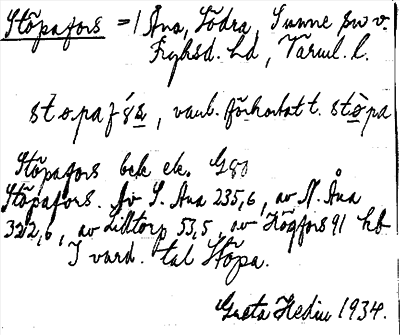 Stöpafors = 1 Åna, Södra, Sunne sn v.
Fryksd. hd, Värml. l.
stopafša, vanl. förkortat t. stöpa
Stöpafors bek ek. G80
Stöpafors. Av S. Åna 235,6, av N. Åna
322,6, av Lilltorp 53,5, av Högfors 91 hb
I vard. tal Stöpa.
Greta Hedin 1934.